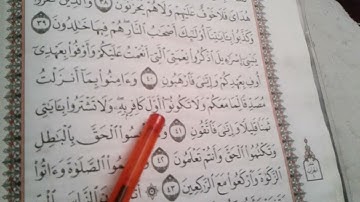 هُدَايَ فَلَا خَوْفٌ عَلَيْهِمْ وَلَا هُمْ يَحْزَنُونَ ٣٨ وَالَّذِينَ
وَكَذَّبُوا بِآيَاتِنَا أُولَٰئِكَ أَصْحَابُ النَّارِ هُمْ فِيهَا خَالِدُونَ ٣٩
يَٰبَنِي إِسْرَٰٓءِيلَ اذْكُرُوا نِعْمَتِيَ الَّتِي أَنْعَمْتُ عَلَيْكُمْ وَأَوْفُوا بِعَهْدِي
أُوفِ بِعَهْدِكُمْ وَإِيَّٰيَ فَارْهَبُونِ ٤٠ وَءَامِنُوا بِمَا أَنزَلْتُ
مُصَدِّقًا لِّمَا مَعَكُمْ وَلَا تَكُونُوا أَوَّلَ كَافِرٍ بِهِ وَلَا تَشْتَرُوا بِـَٔايَٰتِي
ثَمَنًا قَلِيلًا وَإِيَّٰيَ فَاتَّقُونِ ٤١ الْحَقَّ بِالْبَٰطِلِ
وَتَكْتُمُوا الْحَقَّ وَأَنتُمْ تَعْلَمُونَ ٤٢ الصَّلَوٰةَ وَءَاتُوا
الزَّكَوٰةَ وَارْكَعُوا مَعَ الرَّٰكِعِينَ ٤٣